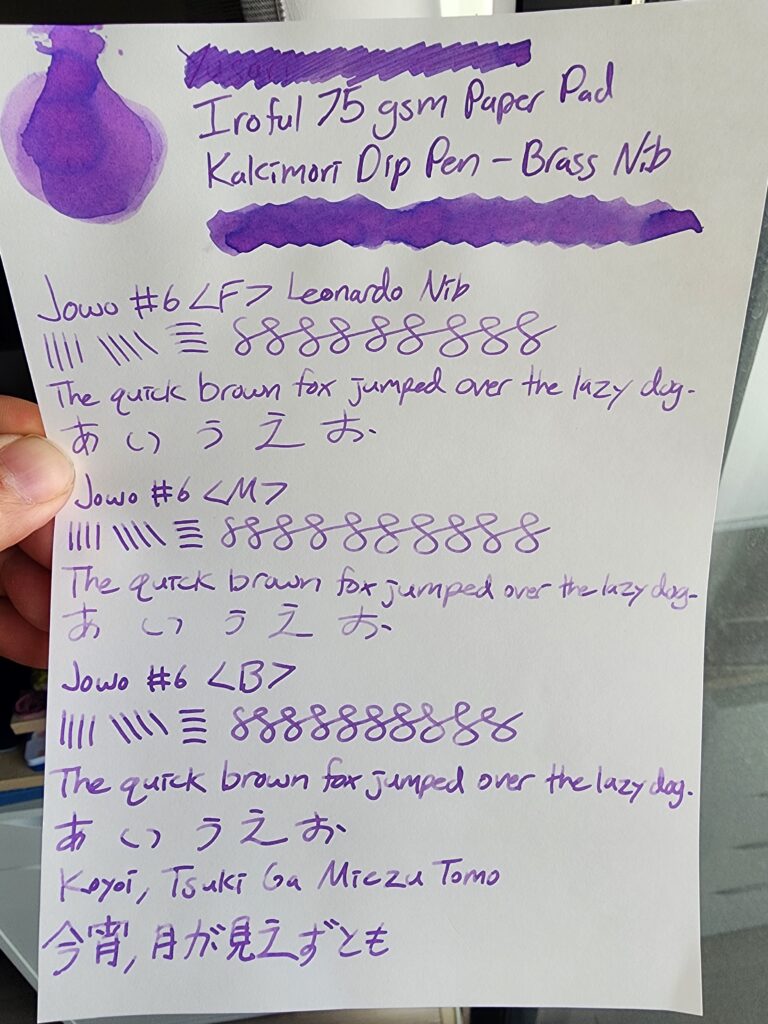 Iroful 75 gsm Paper Pad
Kakimori Dip Pen - Brass Nib
Jowo #6 <F> Leonardo Nib
The quick brown fox jumped over the lazy dog.
あ い う え お
Jowo #6 <M>
The quick brown fox jumped over the lazy dog.
あ い う え お
Jowo #6 <B>
The quick brown fox jumped over the lazy dog.
あ い う え お
Koyoi, Tsuki Ga Miezu Tomo
今宵, 月が見えずとも